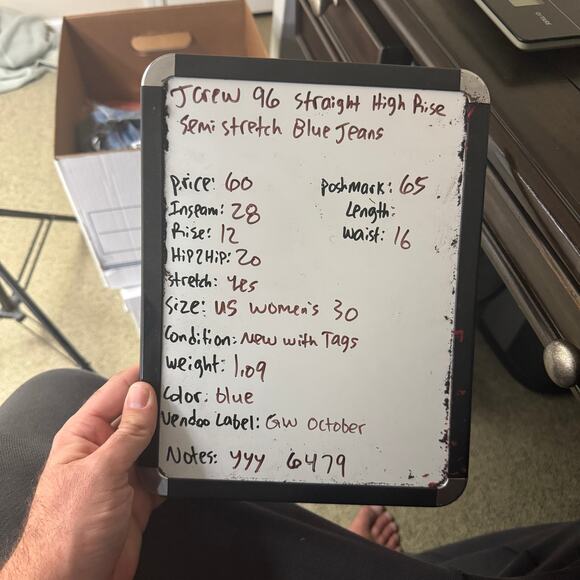 Jcrew 96 Straight High Rise
Semi stretch Blue Jeans
price: 60 poshmark: 65
Inseam: 28 Length:
Rise: 12 waist: 16
Hip2Hip: 20
stretch: yes
Size: US women's 30
Condition: New with Tags
weight: 1.09
Color: blue
Vendoo Label: GW October
Notes: yyy 6479